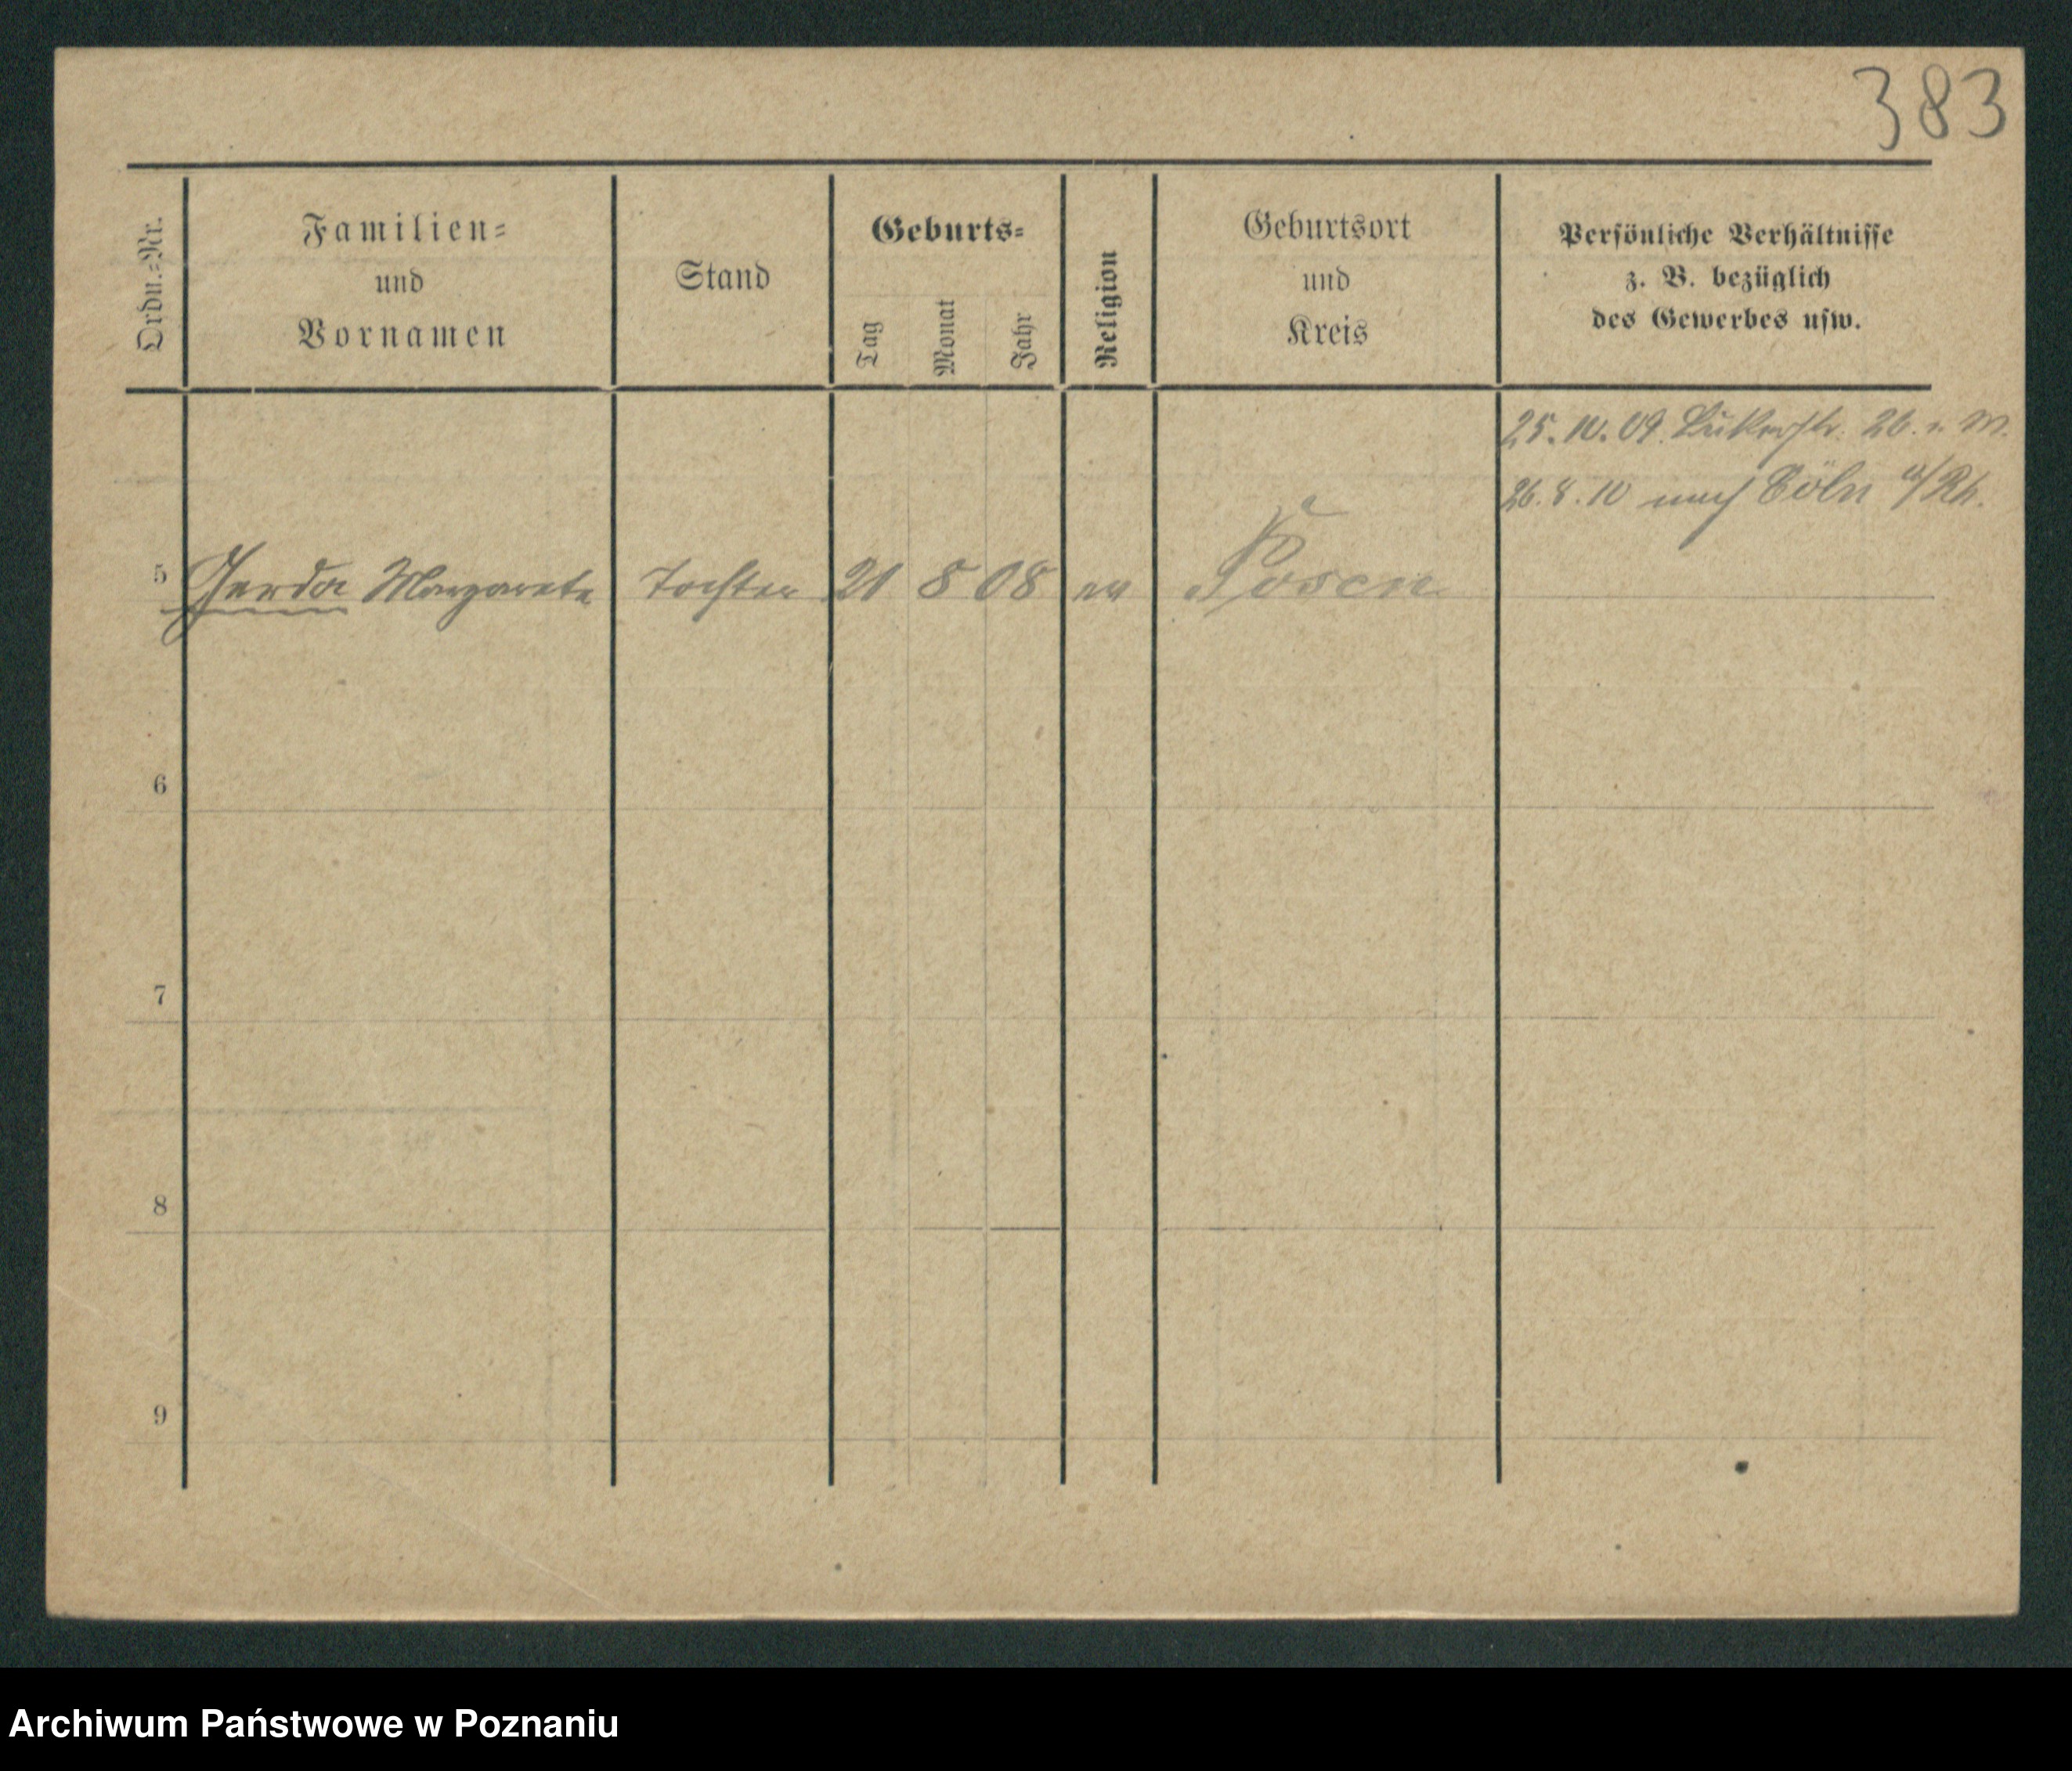 383
Ordn.=Nr.
Familien=
und
Vornamen
Stand
Geburts=
Tag
Monat
Jahr
Religion
Geburtsort
und
Kreis
Persönliche Verhältnisse
z. B. bezüglich
des Gewerbes usw.
25. 10. 09. 26. v. M.
26. 8. 10 nach Cöln a/Rh.
5 Gerda Margarete Tochter 21 8 08 ev Posen
6
7
8
9
Archiwum Państwowe w Poznaniu